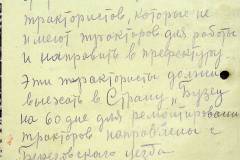 трактористов, которые не
имеют тракторов для работы
и направить в префектуру.
Эти трактористы должны
выехать в Страну „Бузеу
на 60 дне для ремонтировани
тракторов направлены с